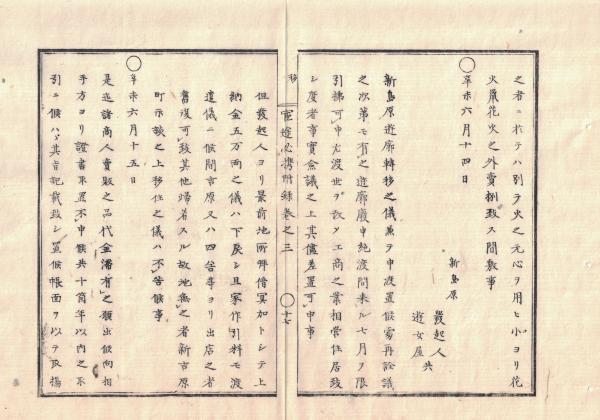 之者ニ於テハ別テ火之元心ヲ用ヒ小ヨリ花
火鼠花火之外賣捌致ス間敷事
○
辛未六月十四日
新島原
發起人
遊女屋共
新島原遊廓轉移之儀兼テ申渡置候處再詮議
之次第モ有之遊廓廢申絶渡間来ル七月ヲ限
引拂可申尤渡世ヲ改メ工商之業相営住居致
シ度者事實僉議之上其儘差置可申事
移
○十七
但發起人ヨリ最前地所拜借冥加トシテ上
納金五万両之儀ハ下戻シ且家作引料モ渡
遣儀ニ候間吉原又ハ四宿等ヨリ出店之者
舊復可致其他帰着スル故地無之者新吉原
町示談之上移住之儀ハ不苦候事
○
辛未六月十五日
是迄諸商人賣販之品代金滞有之願出候向相
手方ヨリ證書取置不申候共十箇年以内之不
引ニ候ハヽ其旨記載致シ置候帳面ヲ以テ取揚